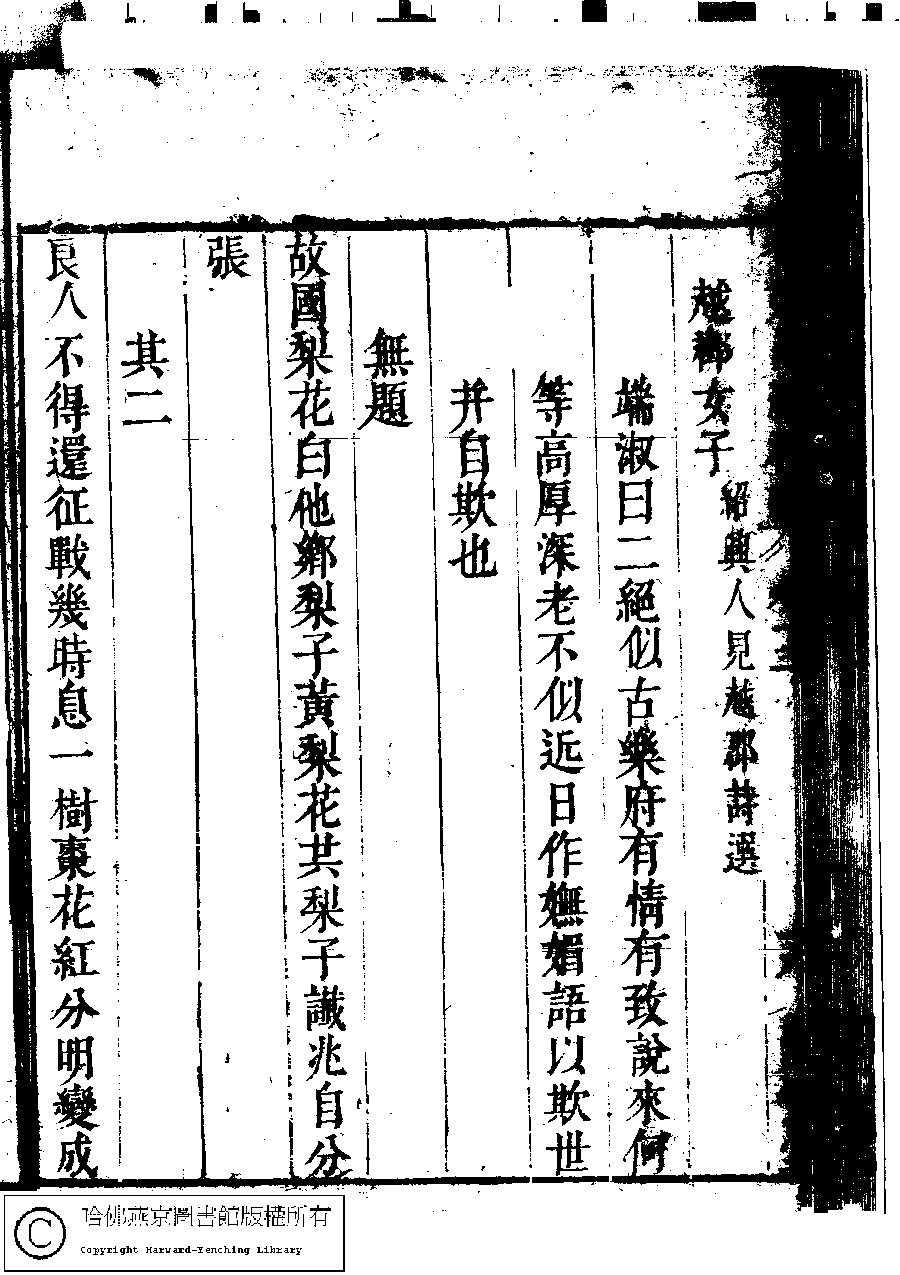 越郡女子 紹興人見越郡詩選
端淑曰二絕似古樂府有情有致說來何
等高厚深老不似近日作嫵媚語以欺世
并自欺也
無題
故國梨花白他鄉梨子黃梨花共梨子讖兆自分
張
其二
良人不得還征戰幾時息一樹棗花紅分明變成
哈佛燕京圖書館版權所有
Copyright Harward-Yenching Library